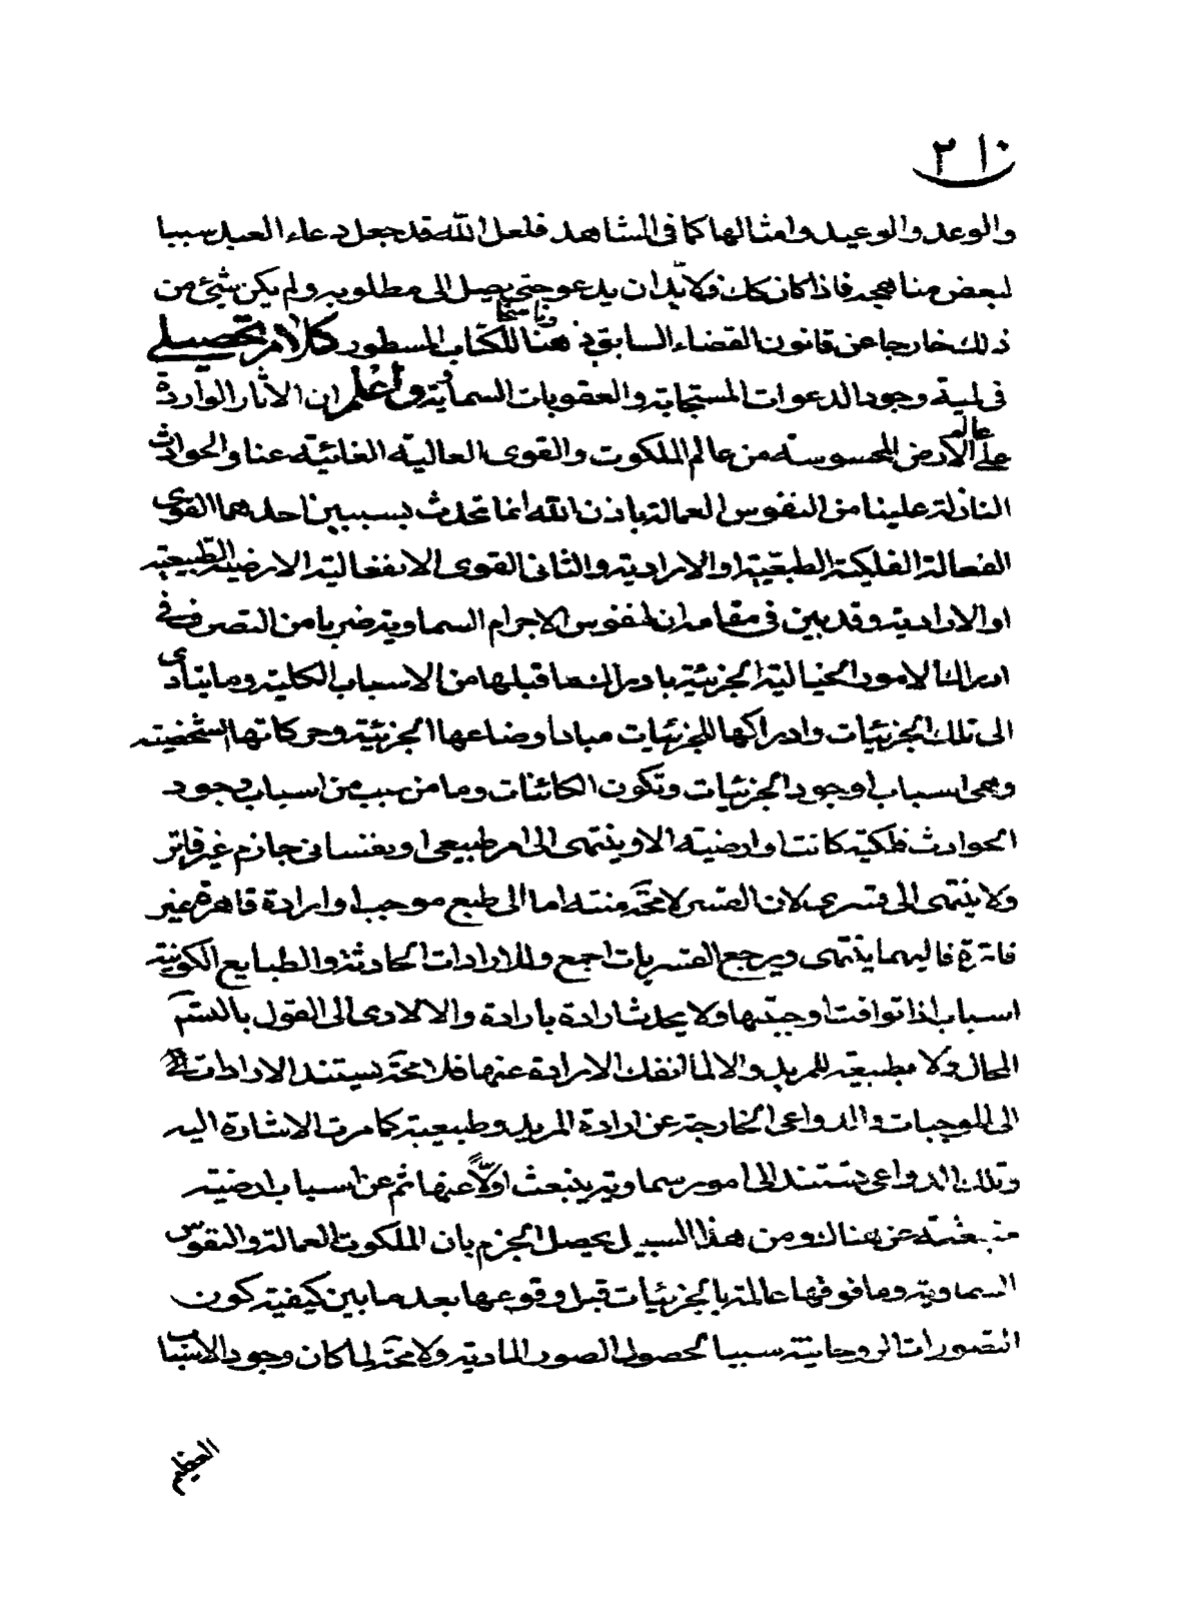 ٢١٠
والوعد والوعيد وامثالها كما فى الشاهد فلعل الله قد جعل دعاء العبد سببا
لبعض مناهجه فاذا كان كك فلا بد ان يدعو حتى يصل الى مطلوبه ولم يكن شئ من
ذلك خارجا عن قانون القضاء السابق هنا للكتاب المسطور كلام تحصيلى
فى لمية وجود الدعوات المستجابة والعقوبات السمائية واعلم ان الاثار الواردة
على عالم الارض المحسوسة من عالم الملكوت والقوى العالية الغائبة عنا والحوادث
النازلة علينا من النفوس العمالة باذن الله انما تحدث بسببين احدهما القوى
الفعالة الفلكية الطبيعية او الارادية والثانى القوى الانفعالية الارضية الطبيعية
او الارادية وقد بين فى مقامه ان لنفوس الاجرام السماوية ضربا من التصرف فى
ادراك الامور الخيالية الجزئية بادراك ما قبلها من الاسباب الكلية وما يتادى
الى تلك الجزئيات وادراكها للجزئيات مبادا وضاعها الجزئية وحركاتها الشخصية
وهى اسباب لوجود الجزئيات وتكون الكائنات وما من سبب من اسباب وجود
الحوادث فلكية كانت او ارضية الا وينتهى الى امر طبيعى او نفسانى جازم غير فاتر
ولا ينتهى الى قسرى لان القسر لا محة منته اما الى طبع موجب او ارادة قاهرة غير
فاترة فاليهما ينتهى ويرجع القسريات اجمع وللارادات الحادثة والطبايع الكونية
اسباب اذا توافت اوجبتها ولا يحدث ارادة بارادة والا لادى الى القول بالتسم
المحال ولا بطبيعة للمريد والا لما انفك الارادة عنها فلا محة يستند الارادات
الى الموجبات والدواعى الخارجة عن ارادة المريد وطبيعية كما مرت الاشارة اليه
وتلك الدواعى تستند الى امور سماوية ينبعث اولا عنها ثم عن اسباب ارضية
منبعثة عن هنالك ومن هذا السبيل يحصل الجزم بان الملكوت العمالة والنفوس
السماوية وما فوقها عالمة بالجزئيات قبل وقوعها بعد ما بين كيفية كون
التصورات الروحانية سببا لحصول الصور المادية ولا محة لما كان وجود الاسباب
العظيم